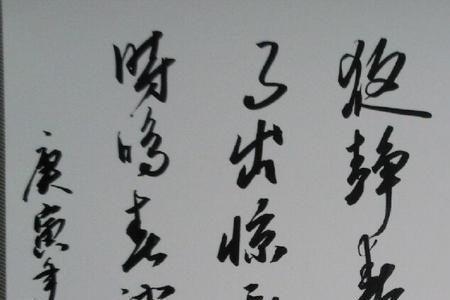 夜静春
月出惊
时鸣春
庚寅年